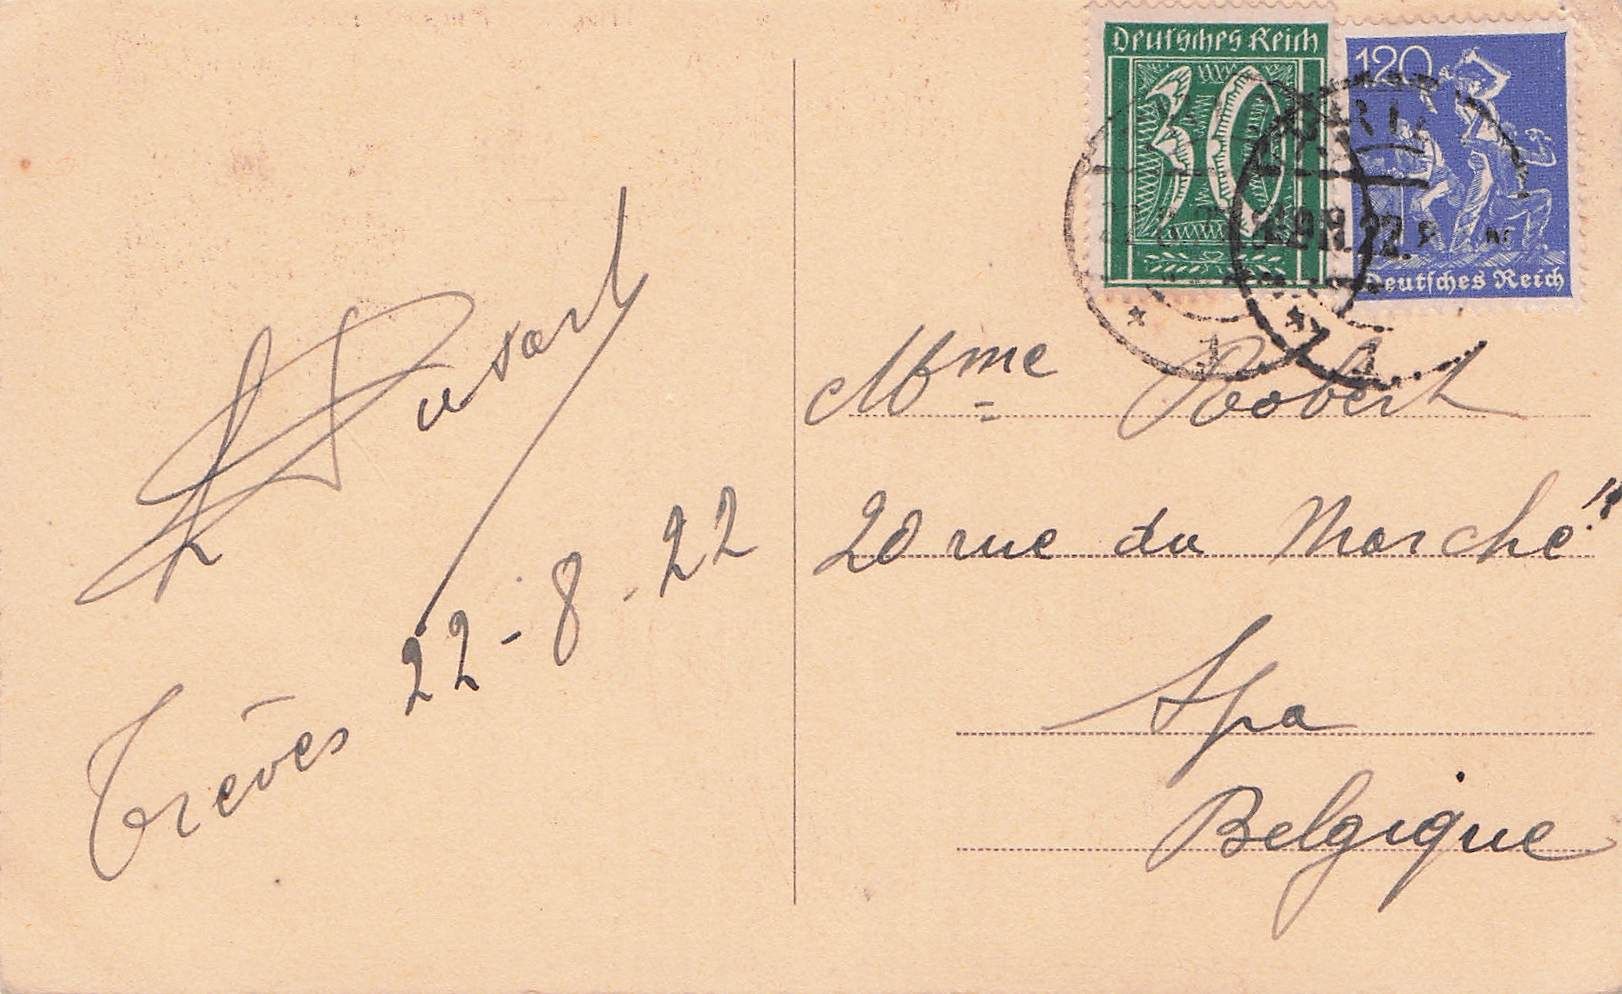 Deutsches Reich
30
120
Deutsches Reich
Mme Robert
20 rue du Marché
Spa
Belgique
Trèves 22-8-22